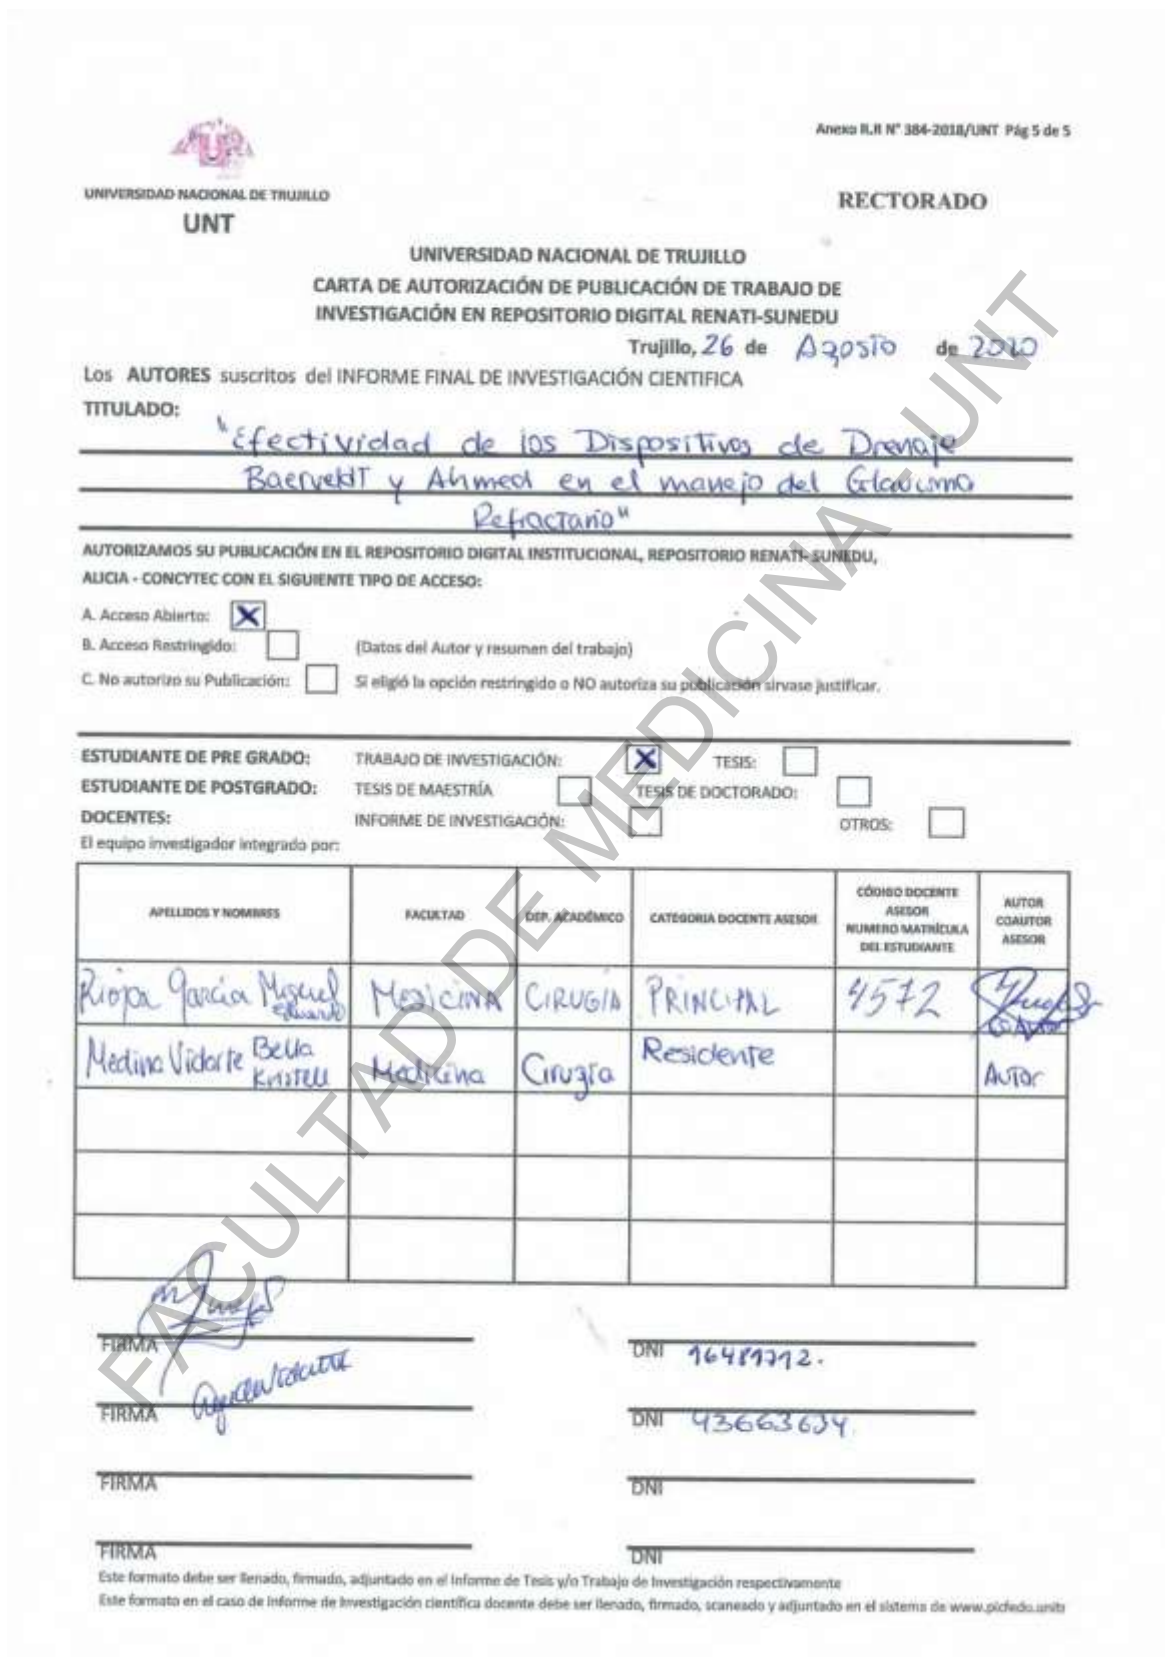 Anexo R.R N° 384-2018/UNT Pág 5 de 5
UNIVERSIDAD NACIONAL DE TRUJILLO
UNT
RECTORADO
UNIVERSIDAD NACIONAL DE TRUJILLO
CARTA DE AUTORIZACIÓN DE PUBLICACIÓN DE TRABAJO DE
INVESTIGACIÓN EN REPOSITORIO DIGITAL RENATI-SUNEDU
Trujillo, 26 de Agosto de 2020
Los AUTORES suscritos del INFORME FINAL DE INVESTIGACIÓN CIENTIFICA
TITULADO:
"Efectividad de los Dispositivos de Drenaje
Baerveldt y Ahmed en el manejo del Glaucoma
Refractario"
AUTORIZAMOS SU PUBLICACIÓN EN EL REPOSITORIO DIGITAL INSTITUCIONAL, REPOSITORIO RENATI- SUNEDU,
ALICIA - CONCYTEC CON EL SIGUIENTE TIPO DE ACCESO:
A. Acceso Abierto: X
B. Acceso Restringido: (Datos del Autor y resumen del trabajo)
C. No autorizo su Publicación: Si eligió la opción restringido o NO autoriza su publicación sirvase justificar.
ESTUDIANTE DE PRE GRADO: TRABAJO DE INVESTIGACIÓN: X TESIS:
ESTUDIANTE DE POSTGRADO: TESIS DE MAESTRÍA TESIS DE DOCTORADO:
DOCENTES: INFORME DE INVESTIGACIÓN: OTROS:
El equipo investigador integrado por:
APELLIDOS Y NOMBRES FACULTAD DEP. ACADÉMICO CATEGORIA DOCENTE ASESOR CÓDIGO DOCENTE ASESOR NUMERO MATRÍCULA DEL ESTUDIANTE AUTOR COAUTOR ASESOR
Rioja García Miguel Eduardo MEDICINA CIRUGIA PRINCIPAL 4572
Medina Vidarte Bella Kristell Medicina Cirugía Residente Autor
FIRMA DNI 16481712.
FIRMA DNI 43663634.
FIRMA DNI
FIRMA DNI
Este formato debe ser llenado, firmado, adjuntado en el Informe de Tesis y/o Trabajo de Investigación respectivamente
Este formato en el caso de Informe de Investigación científica docente debe ser llenado, firmado, scaneado y adjuntado en el sistema de www.picfedu.unitr
FACULTAD DE MEDICINA - UNT